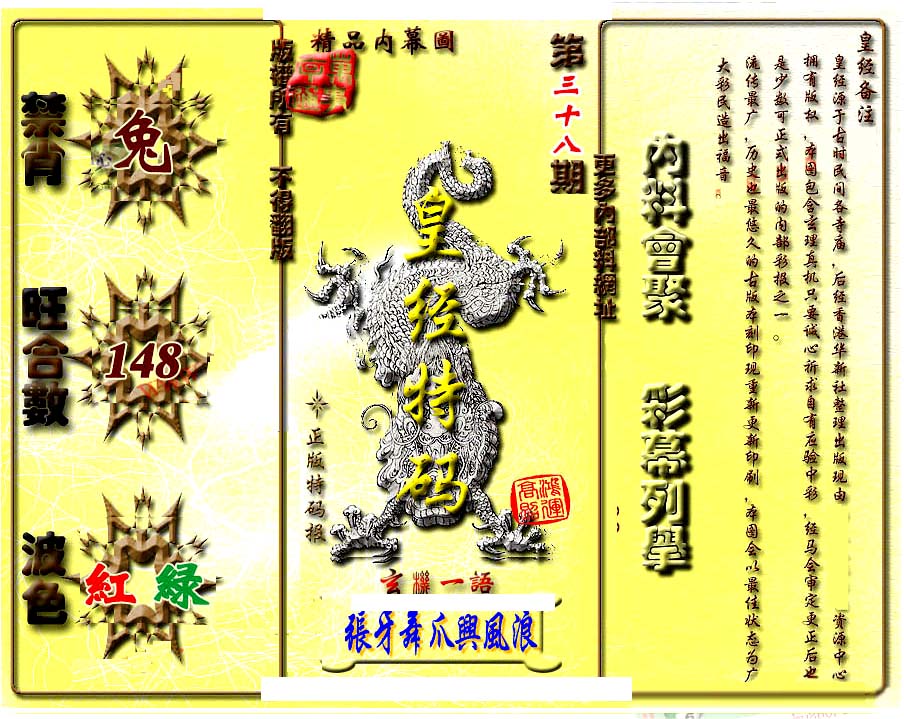 精品内幕圖
版權所有 不得翻版
第三十八期
更多內部料網址
禁肖
兔
旺合數
148
波色
紅 綠
皇经特码
正版特码报
鴻運
高照
玄機一語
張牙舞爪興風浪
內料會聚
彩幕列舉
皇经备注
皇经源于古时民间各寺庙,后经香港华新社整理出版现由 资源中心
拥有版权,本图包含玄理真机只要诚心祈求自有应验中彩,经马会审定更正后也
是少数可正式出版的内部彩报之一。
流传最广,历史也最悠久的古版本刻印现重新更新印刷,本图会以最佳状态为广
大彩民造出福音